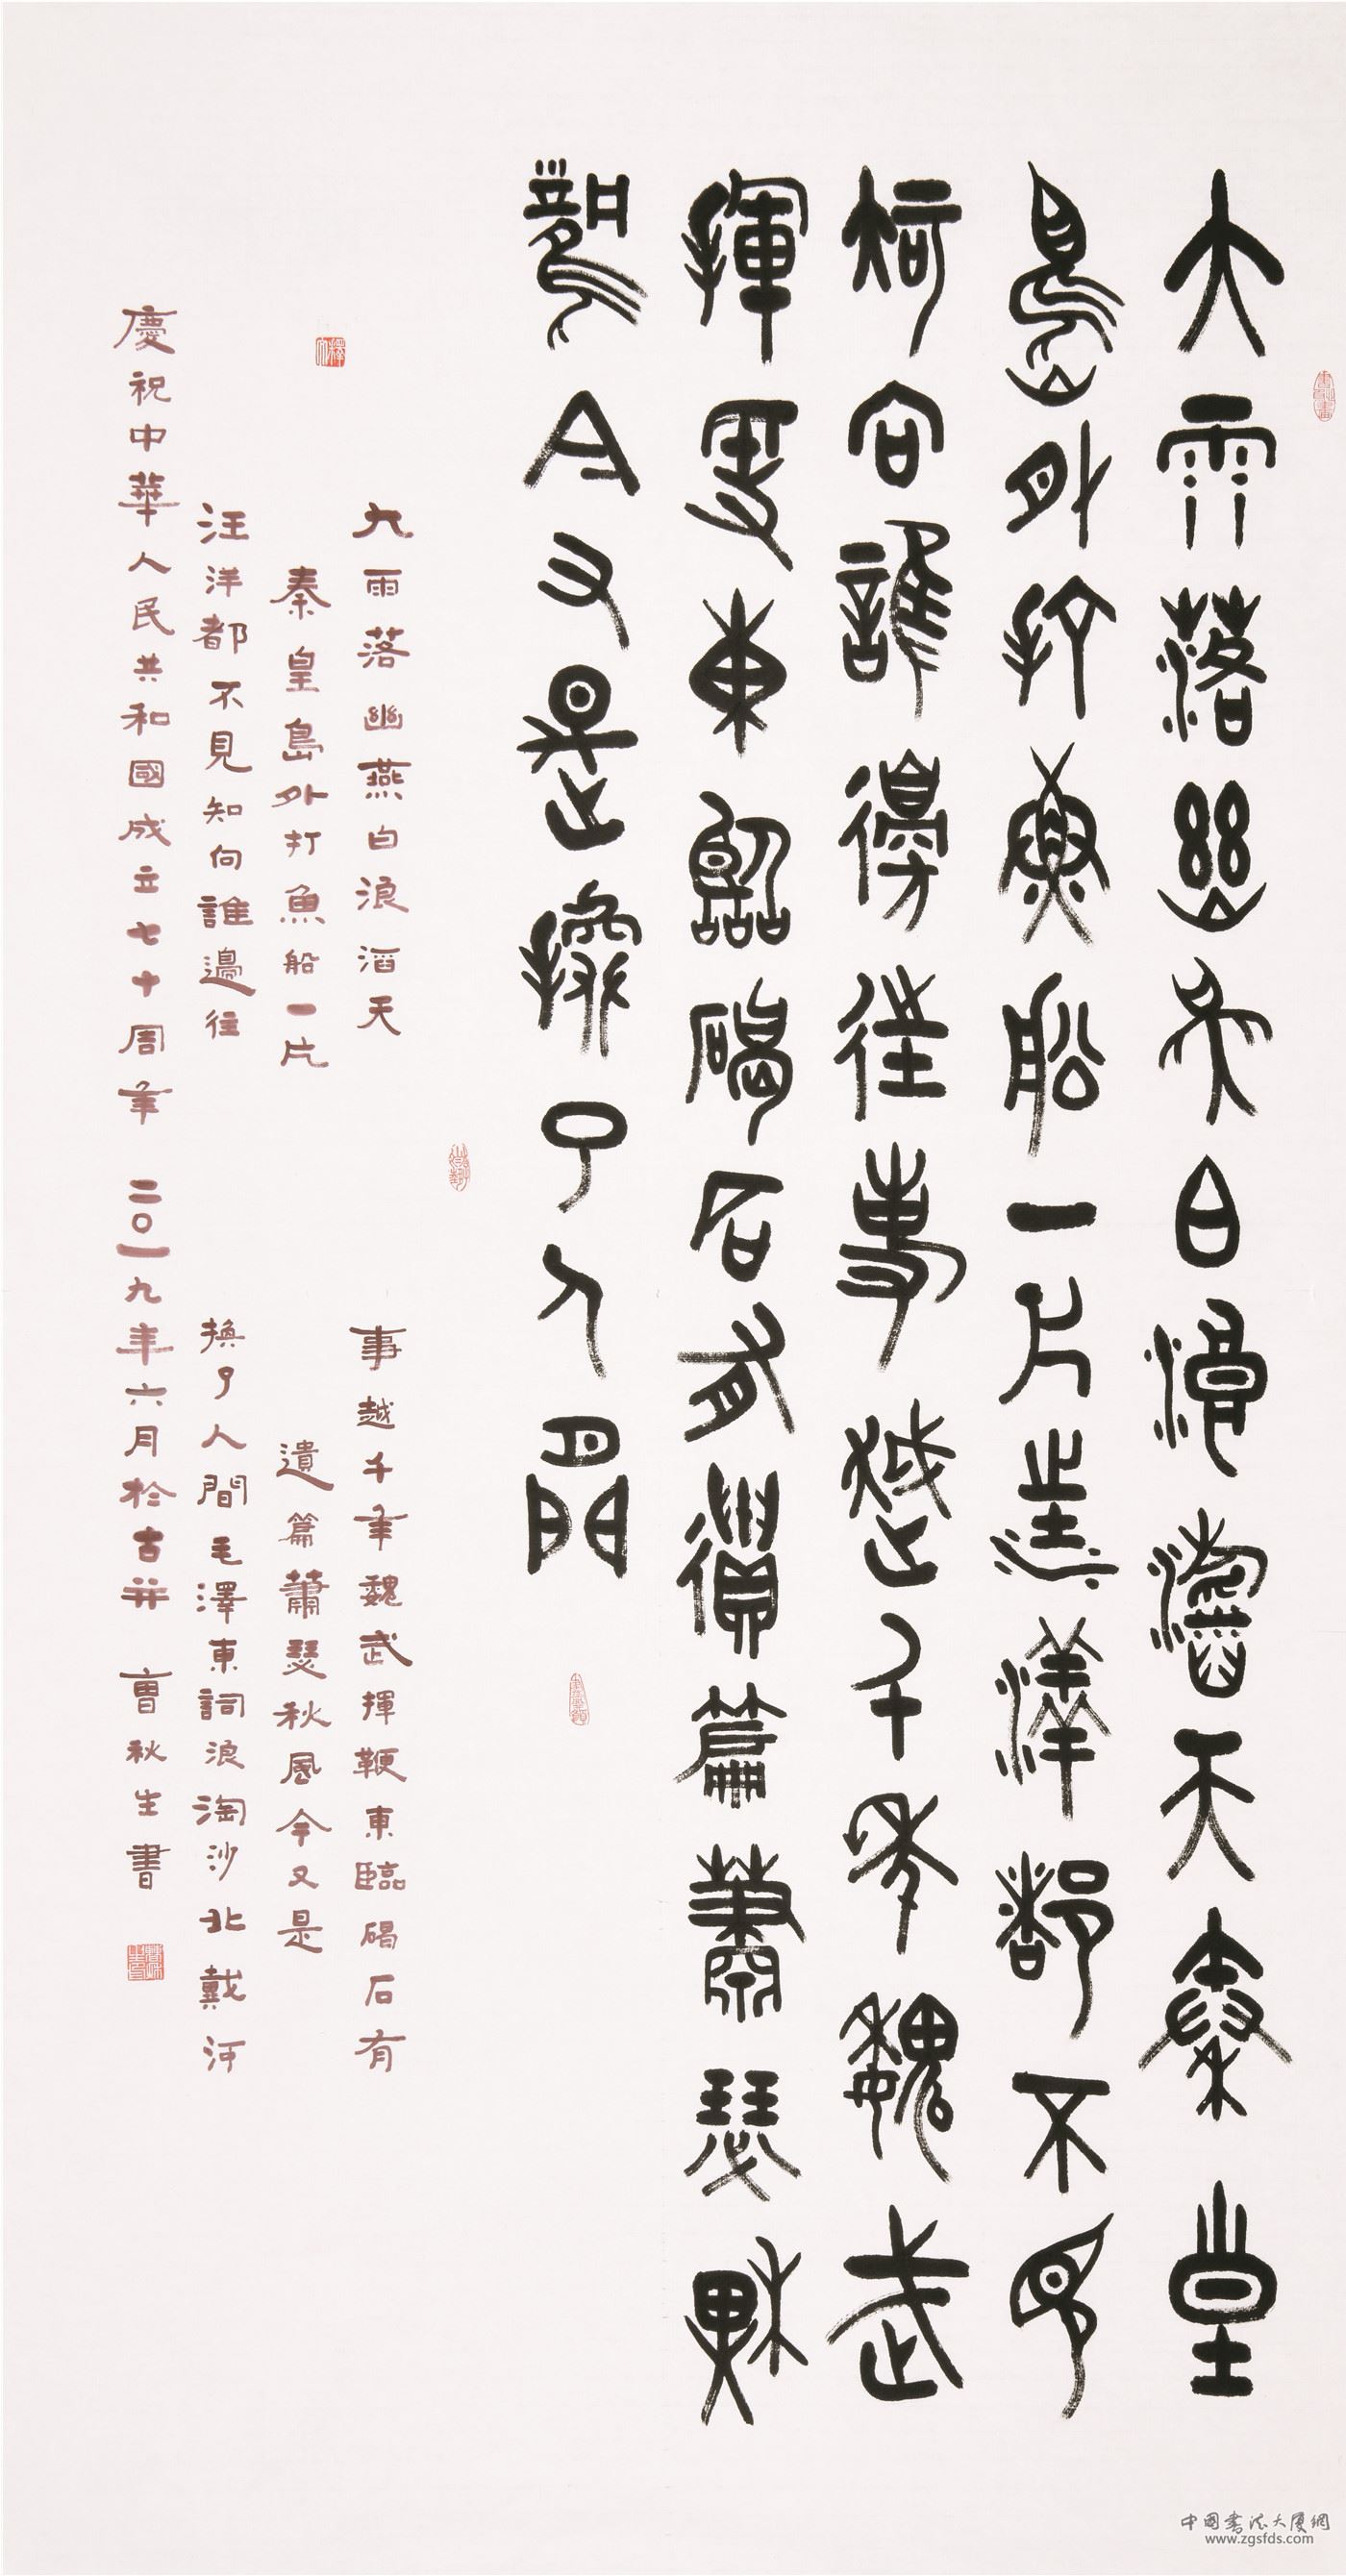 大雨落幽燕白浪滔天秦皇
島外打魚船一片汪洋都不見
知向誰邊往事越千年魏武
揮鞭東臨碣石有遺篇蕭瑟秋
風今又是換了人間
釋文
大雨落幽燕白浪滔天
秦皇島外打魚船一片
汪洋都不見知向誰邊往
事越千年魏武揮鞭東臨碣石有
遺篇蕭瑟秋風今又是
換了人間毛澤東詞浪淘沙北戴河
慶祝中華人民共和國成立七十周年 二〇一九年六月於古并 曹秋生書
中国書法大厦網
www.zgsfds.com